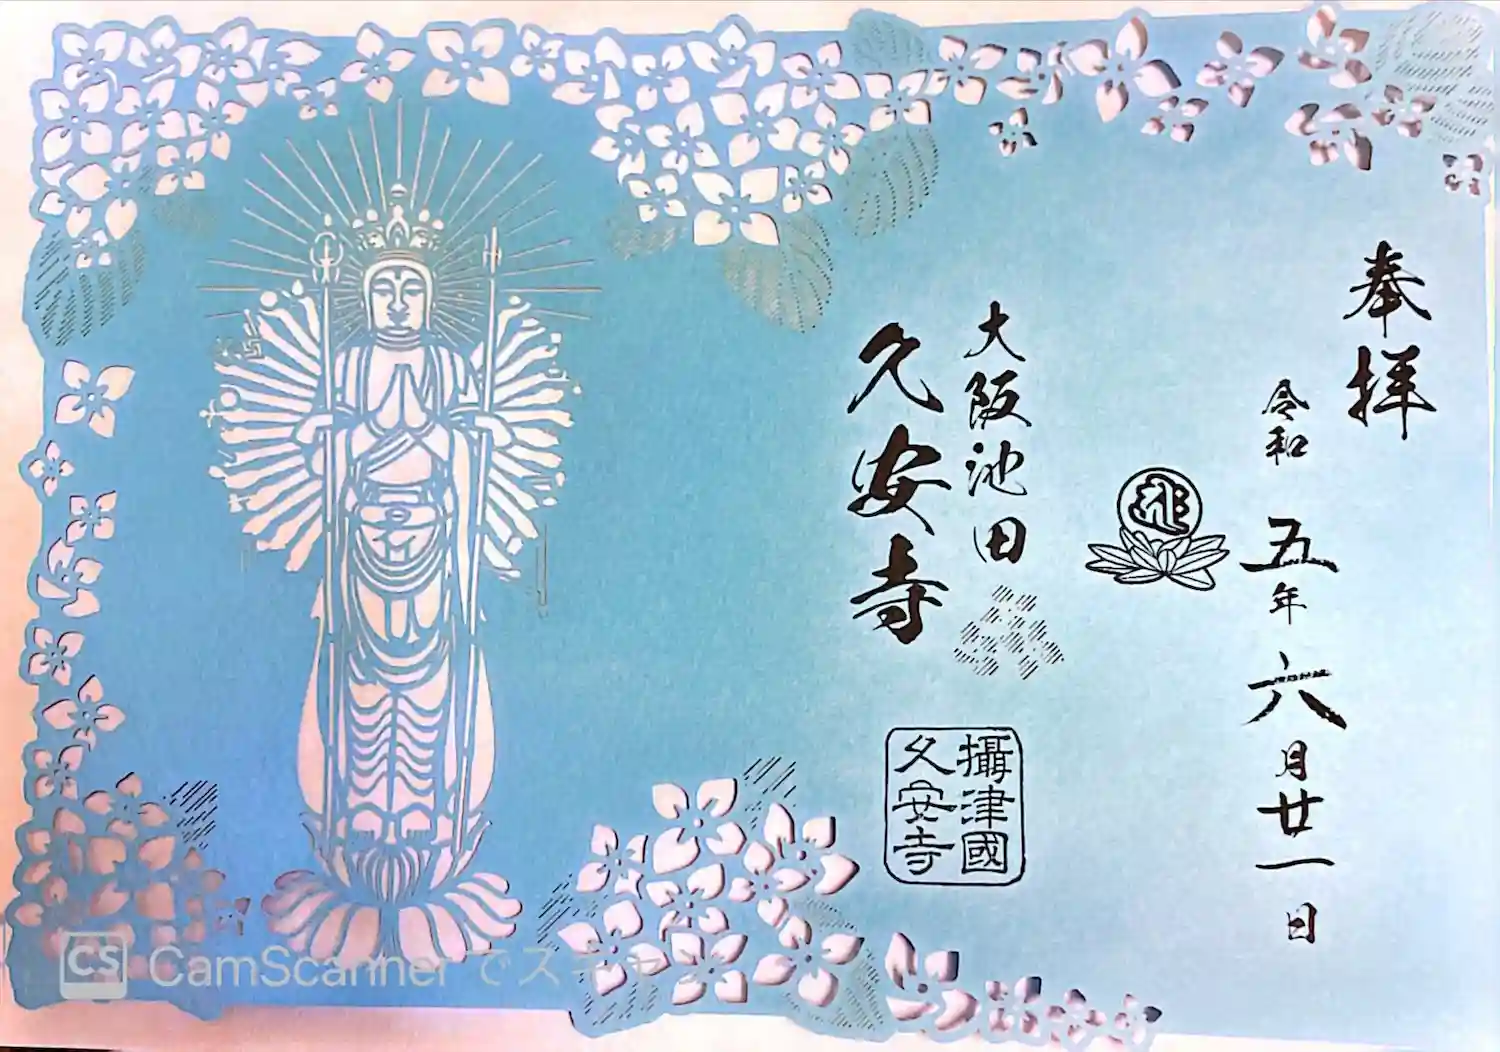 奉拝
令和五年六月廿一日
大阪池田
久安寺
攝津國
久安寺
CS CamScanner でスキャン